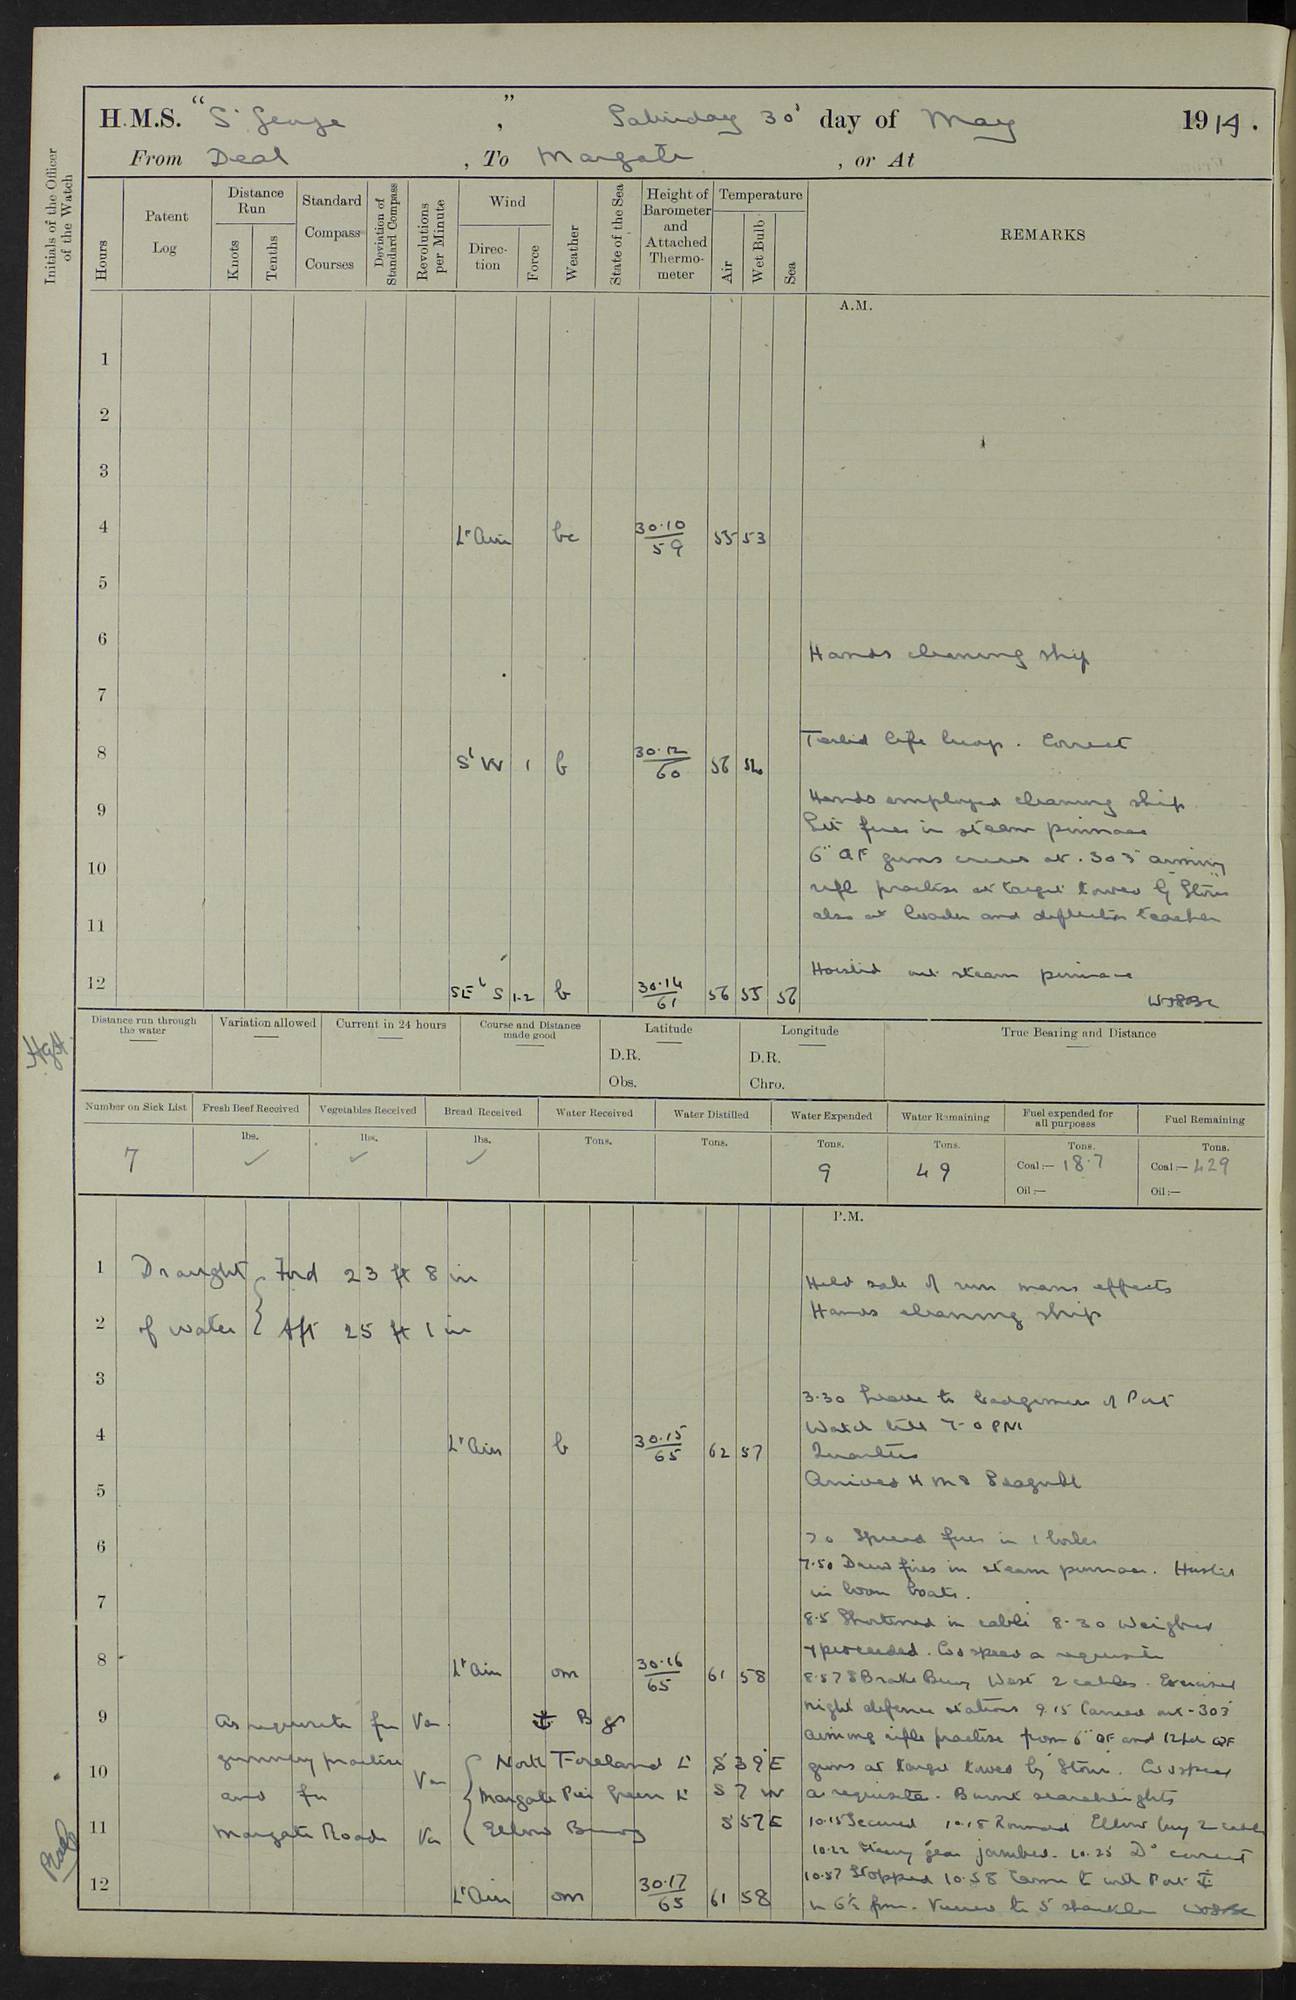 H.M.S. "St George", Saturday 30th day of May 1914.
From Deal, To Margate, or At
Initials of the Officer of the Watch
Hours
Patent Log
Distance Run
Knots
Tenths
Standard Compass Courses
Deviation of Standard Compass
Revolutions per Minute
Wind
Direction
Force
Weather
State of the Sea
Height of Barometer and Attached Thermometer
Temperature
Air
Wet Bulb
Sea
REMARKS
A.M.
1
2
3
4 Lt Airs bc 30.10/59 55 53
5
6 Hands cleaning ship
7
Tested life buoys. Correct
8 S'W 1 b 30.12/60 56
Hands employed cleaning ship
9
Lit fires in steam pinnace
6" QF guns crews at .303 aiming
10
rifle practise at target towed by Stour
also at loader and deflection teacher
11
Hoisted out steam pinnace
12 SE'S 1-2 b 30.14/61 56 55 56
Distance run through the water
Variation allowed
Current in 24 hours
Course and Distance made good
Latitude
D.R.
Obs.
Longitude
D.R.
Chro.
True Bearing and Distance
Number on Sick List
Fresh Beef Received
Vegetables Received
Bread Received
Water Received
Water Distilled
Water Expended
Water Remaining
Fuel expended for all purposes
Fuel Remaining
7
lbs. ✓
lbs. ✓
lbs. ✓
Tons.
Tons.
Tons. 9
Tons. 49
Tons. Coal:— 18.7 Oil:—
Tons. Coal:— 429 Oil:—
P.M.
1 Draught { Ford 23 ft 8 in
Held sale of run mans effects
2 of water { Aft 25 ft 1 in
Hands cleaning ship
3
3.30 Leave to badgemen of Port
Watch till 7-0 PM
4 Lt Airs b 30.15/65 62 57
Quarters
Arrived HMS Seagull
5
7 0 Spread fires in 1 boiler
6
7.50 Drew fires in steam pinnace. Hoisted
in boom boats.
7
8.5 Shortened in cable 8.30 Weighed
& proceeded. Co & speed as requisite
8 Lt Airs om 30.16/65 61 58
8.57 S Brake Buoy West 2 cables. Exercised
night defence stations 9.15 Carried out .303
9 As requisite for Var.
⚓ Bgs
aiming rifle practise from 6" QF and 12 pdr QF
gunnery practise Var
North Foreland Lt S 39 E
guns at target towed by Stour. Co & speed
10 and for
Margate Pier Green Lt S 7 W
as requisite. Burnt searchlights
11 Margate Roads Var
Elbow Buoy S 57 E
10.15 Secured 10.18 Rounded Elbow buoy 2 cables
10.22 Steering gear jambed. 10.25 Do correct
10.57 Stopped 10.58 Came to with Port ⚓
12 Lt Airs om 30.17/65 61 58
in 6½ fms. Veered to 5 shackles